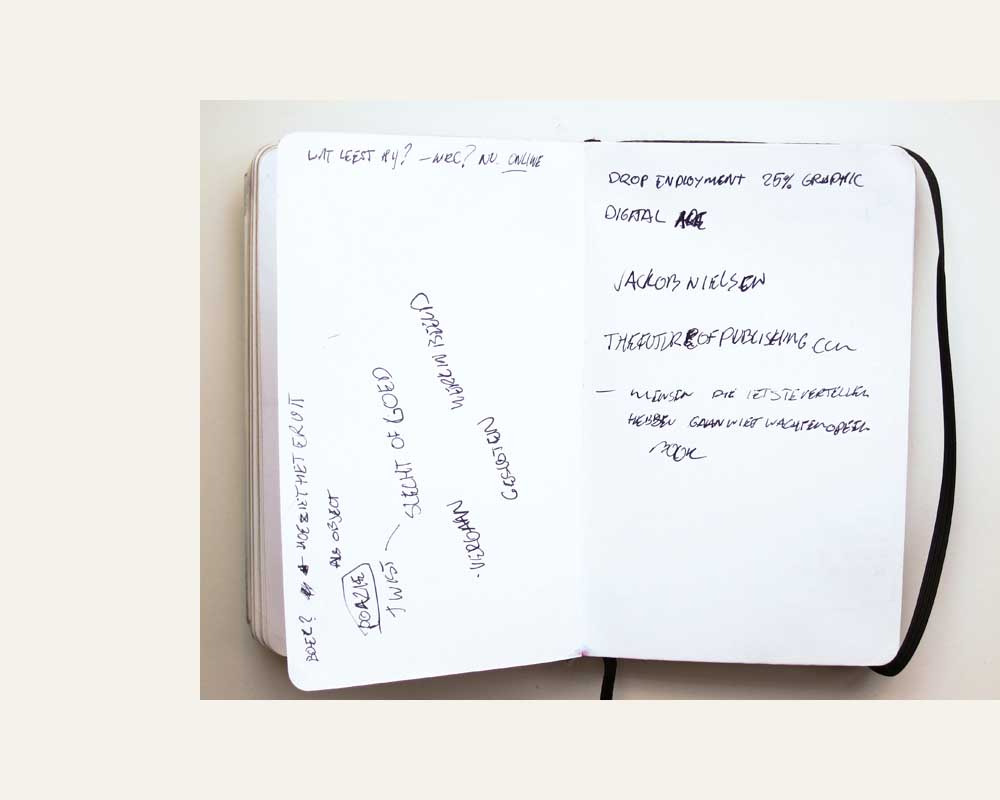 WAT LEEST HY? – WRC? NU. ONLINE
BOEK? HOE ZIET HET ERUIT
ALS OBJECT
TWIST – SLECHT OF GOED
WERK IN BEELD
GESLOTEN
DROP EMPLOYMENT 25% GRAPHIC
DIGITAL
JACKOB NIELSEN
THEFUTUREOFPUBLISHING.COM
— MENSEN DIE IETS TE VERTELLEN
HEBBEN GAAN NIET WACHTEN OP EEN
BOOK